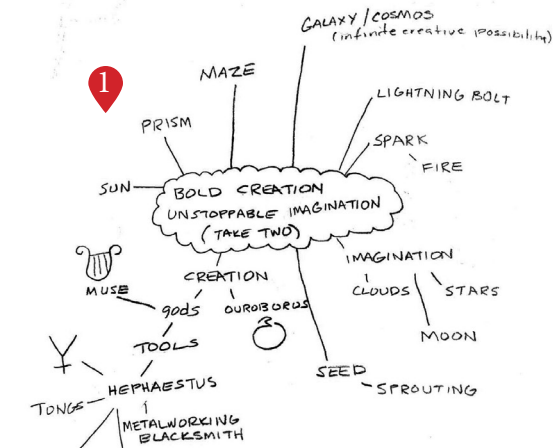 GALAXY/COSMOS
(infinite creative possibility)
1
MAZE
LIGHTNING BOLT
PRISM
SPARK
FIRE
SUN
BOLD CREATION
UNSTOPPABLE IMAGINATION
(TAKE TWO)
IMAGINATION
CREATION
CLOUDS
STARS
MUSE
gods
OUROBOROS
MOON
TOOLS
SEED
SPROUTING
HEPHAESTUS
TONGS
METALWORKING
BLACKSMITH